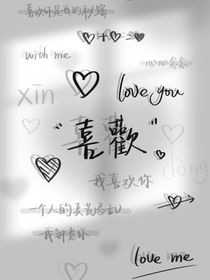 喜欢你是我的秘密
with me
xīn
love you
"喜歡"
dòng
我喜欢你
一个人的兵荒马乱
我钟意你
love me